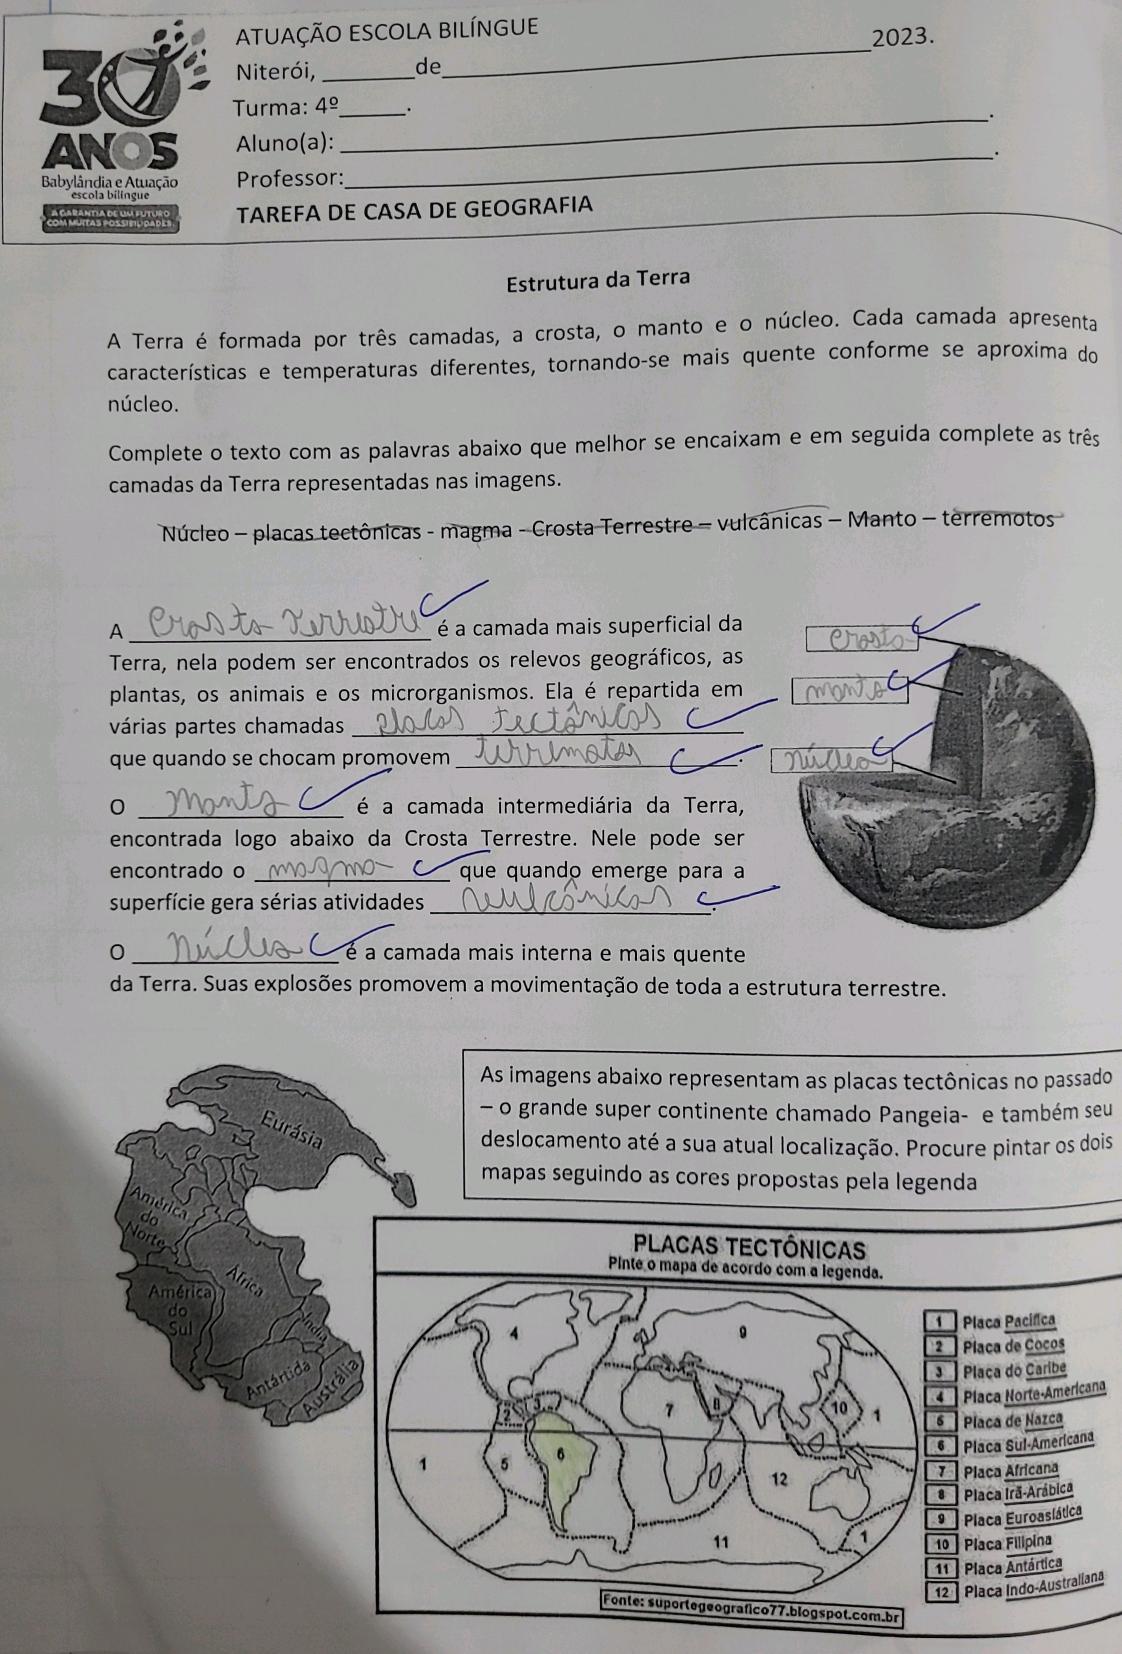 ATUAÇÃO ESCOLA BILÍNGUE
Niterói, ________de________________________________2023.
Turma: 4º______.
Aluno(a): ________________________________.
Professor:________________________________.
TAREFA DE CASA DE GEOGRAFIA
30
ANOS
Babylândia e Atuação
escola bilíngue
A GARANTIA DE UM FUTURO
COM MUITAS POSSIBILIDADES
Estrutura da Terra
A Terra é formada por três camadas, a crosta, o manto e o núcleo. Cada camada apresenta
características e temperaturas diferentes, tornando-se mais quente conforme se aproxima do
núcleo.
Complete o texto com as palavras abaixo que melhor se encaixam e em seguida complete as três
camadas da Terra representadas nas imagens.
Núcleo – placas tectônicas - magma - Crosta Terrestre – vulcânicas – Manto – terremotos
A Crosta Terrestre é a camada mais superficial da
Terra, nela podem ser encontrados os relevos geográficos, as
plantas, os animais e os microrganismos. Ela é repartida em
várias partes chamadas placas tectônicas
que quando se chocam promovem terremotos.
O Manto é a camada intermediária da Terra,
encontrada logo abaixo da Crosta Terrestre. Nele pode ser
encontrado o magma que quando emerge para a
superfície gera sérias atividades vulcânicas.
O Núcleo é a camada mais interna e mais quente
da Terra. Suas explosões promovem a movimentação de toda a estrutura terrestre.
Crosta
manto
núcleo
As imagens abaixo representam as placas tectônicas no passado
– o grande super continente chamado Pangeia- e também seu
deslocamento até a sua atual localização. Procure pintar os dois
mapas seguindo as cores propostas pela legenda
Eurásia
América
do
Norte
África
América
do
Sul
Índia
Antártida
Austrália
PLACAS TECTÔNICAS
Pinte o mapa de acordo com a legenda.
4
9
2
3
7
8
10
1
1
5
6
12
11
1
1 Placa Pacífica
2 Placa de Cocos
3 Placa do Caribe
4 Placa Norte-Americana
5 Placa de Nazca
6 Placa Sul-Americana
7 Placa Africana
8 Placa Irã-Arábica
9 Placa Euroasiática
10 Placa Filipina
11 Placa Antártica
12 Placa Indo-Australiana
Fonte: suportegeografico77.blogspot.com.br